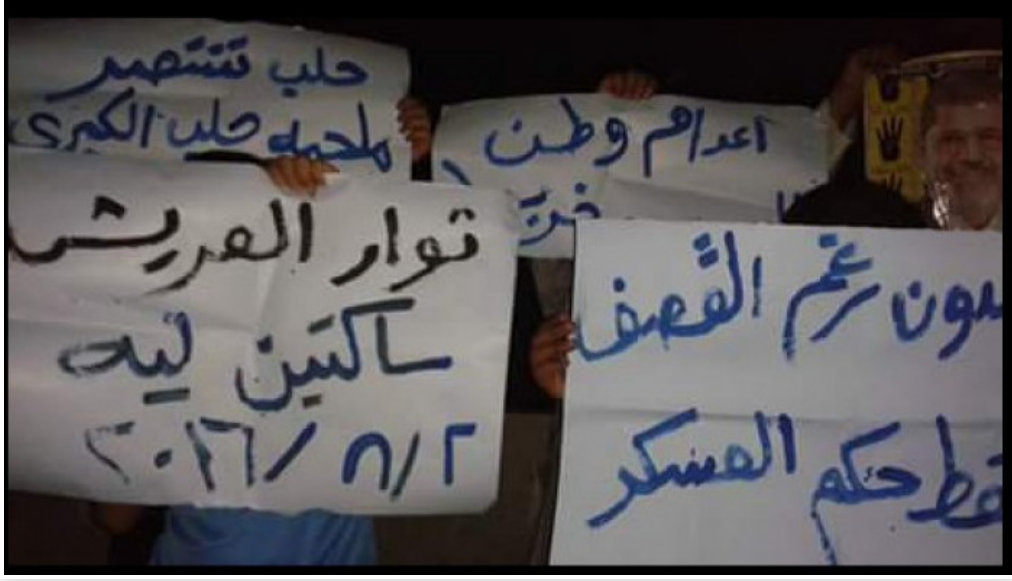 حلب تنتصر
ملحمه حلب الكبرى
اعدام وطن
ثوار العريش
ساكتين ليه
٢٠١٦/٨/٢
رغم القصف
حكم العسكر